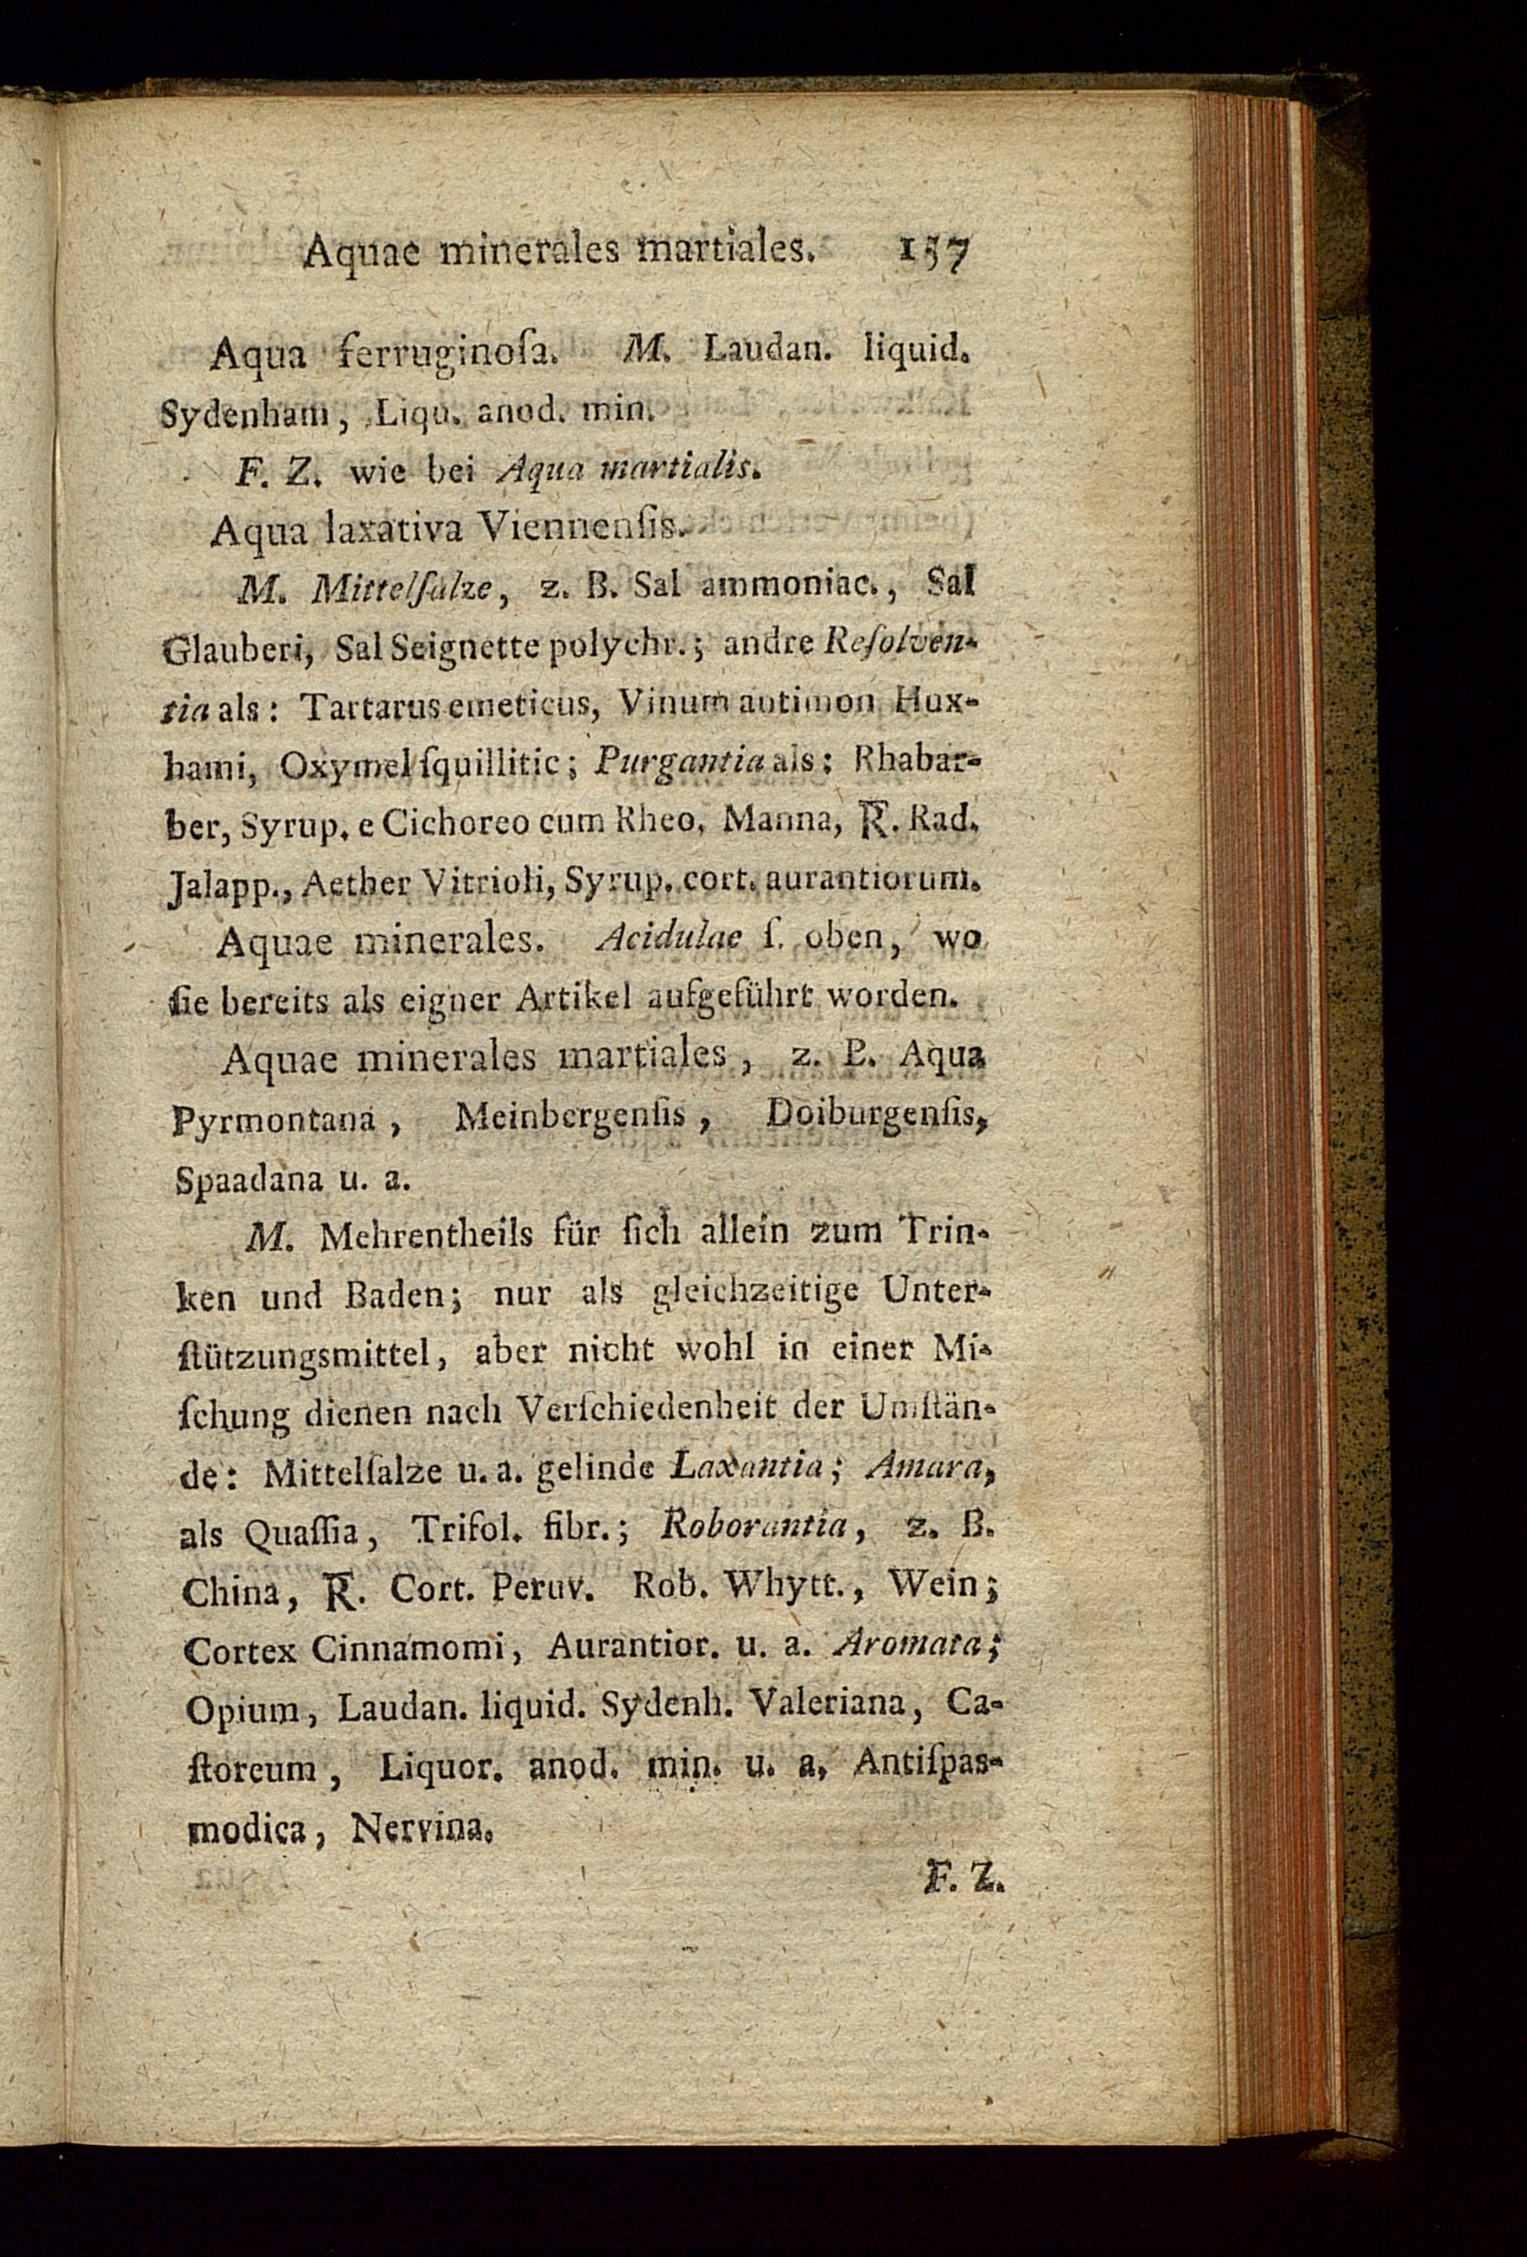 Aquae minerales martiales. 157
Aqua ferruginoſa. M. Laudan. liquid.
Sydenham, Liqu. anod. min.
F. Z. wie bei Aqua martialis.
Aqua laxativa Viennenſis.
M. Mittelſalze, z. B. Sal ammoniac., Sal
Glauberi, Sal Seignette polychr.; andre Reſolven-
tia als: Tartarus emeticus, Vinum antimon Hux-
hami, Oxymel ſquillitic; Purgantia als: Rhabar-
ber, Syrup. e Cichoreo cum Rheo, Manna, R̅. Rad.
Jalapp., Aether Vitrioli, Syrup. cort. aurantiorum.
Aquae minerales. Acidulae ſ. oben, wo
ſie bereits als eigner Artikel aufgeführt worden.
Aquae minerales martiales, z. B. Aqua
Pyrmontana, Meinbergenſis, Doiburgenſis,
Spaadana u. a.
M. Mehrentheils für ſich allein zum Trin-
ken und Baden; nur als gleichzeitige Unter-
ſtützungsmittel, aber nicht wohl in einer Mi-
ſchung dienen nach Verſchiedenheit der Umſtän-
de: Mittelſalze u. a. gelinde Laxantia; Amara,
als Quaſſia, Trifol. fibr.; Roborantia, z. B.
China, R̅. Cort. Peruv. Rob. Whytt., Wein;
Cortex Cinnamomi, Aurantior. u. a. Aromata;
Opium, Laudan. liquid. Sydenh. Valeriana, Ca-
ſtoreum, Liquor. anod. min. u. a. Antiſpas-
modica, Nervina.
F. Z.